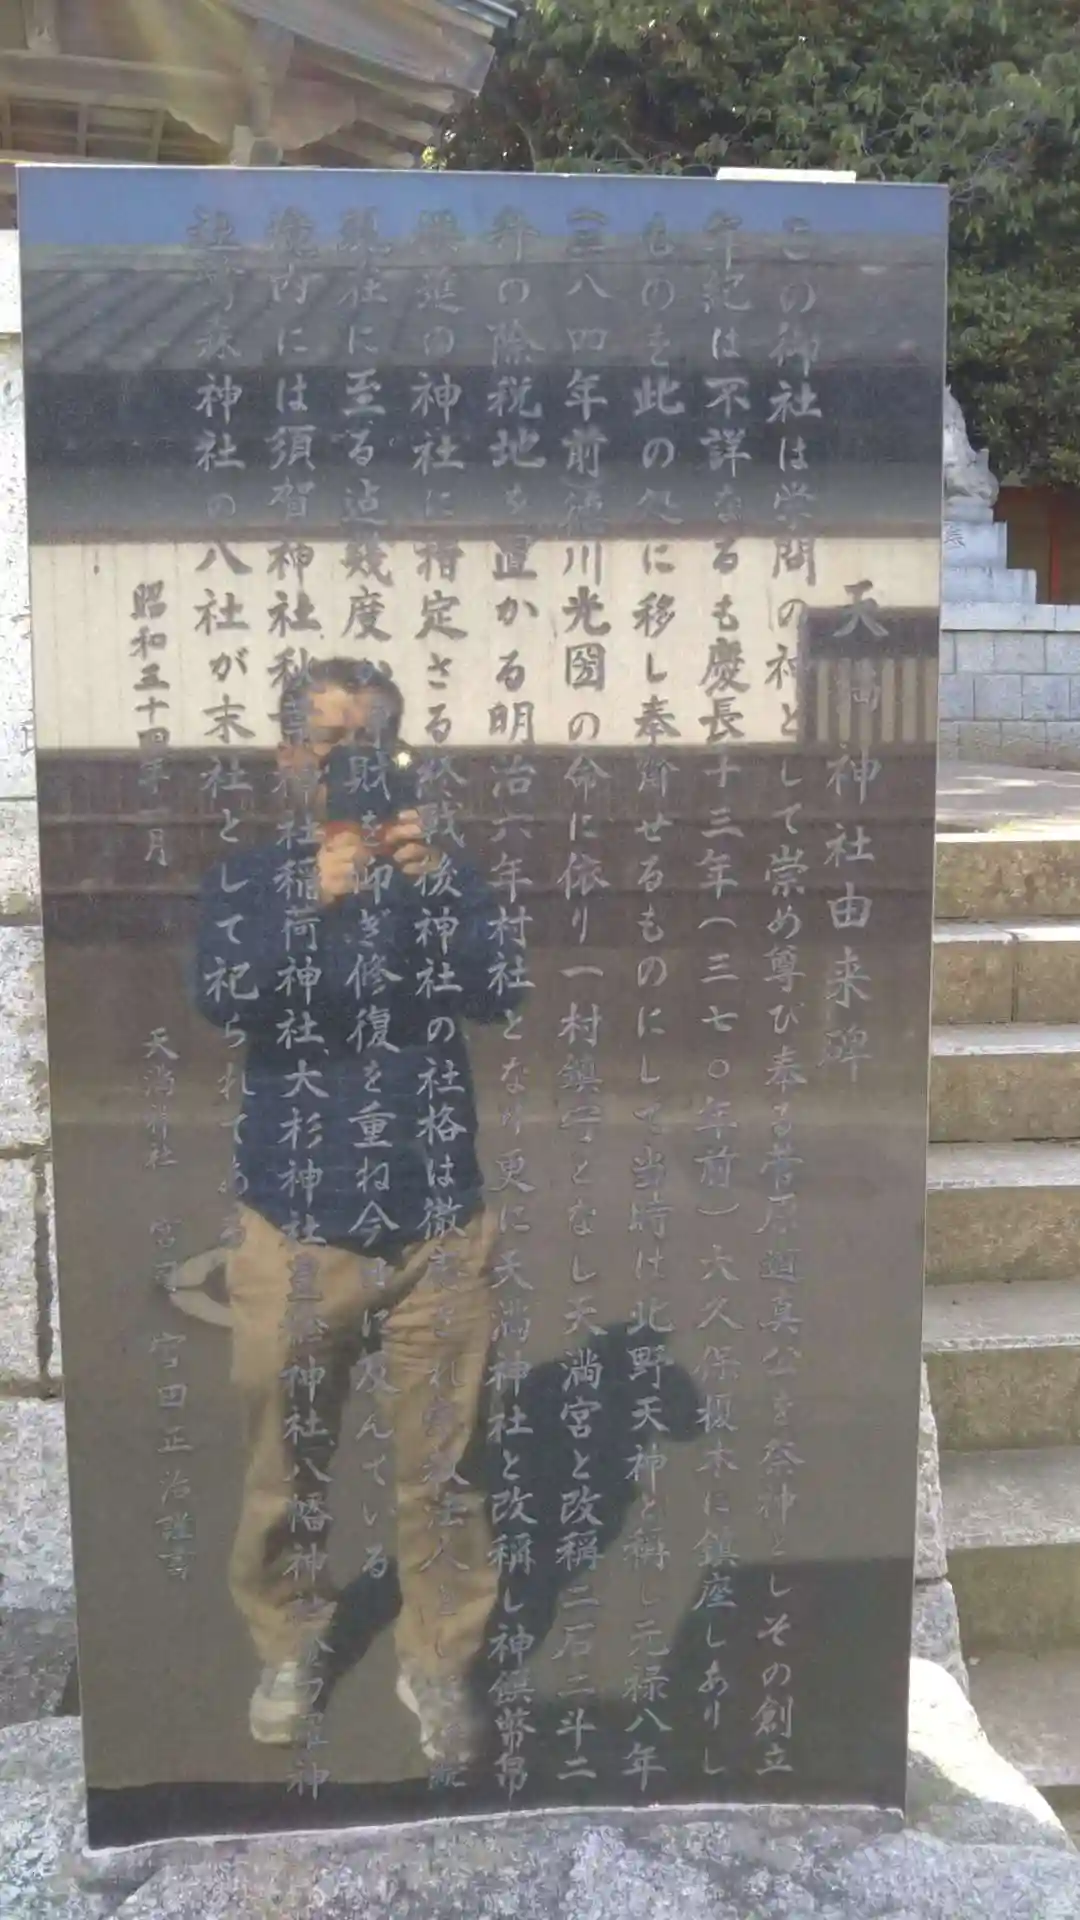 天満神社由来碑
この御社は学問の神として崇め尊び奉る菅原道真公を祭神としその創立
年紀は不詳なるも慶長十三年(三七〇年前)大久保榎木に鎮座しありし
ものを此の処に移し奉齋せるものにして当時は北野天神と稱し元禄八年
(二八四年前)徳川光圀の命に依り一村鎮守となし天満宮と改稱二石二斗二
升の除税地を置かる明治六年村社となり更に天満神社と改稱し神饌幣帛
供進の神社に指定さる終戦後神社の社格は徹廃され宗教法人として
現在に至る迠幾度か財を仰ぎ修復を重ね今日に及んでいる
境内には須賀神社秋葉神社稲荷神社、大杉神社、神社八幡神社神
社、森神社の八社が末社として祀られてある
昭和五十四年二月
天満神社 宮司 宮田正治謹書